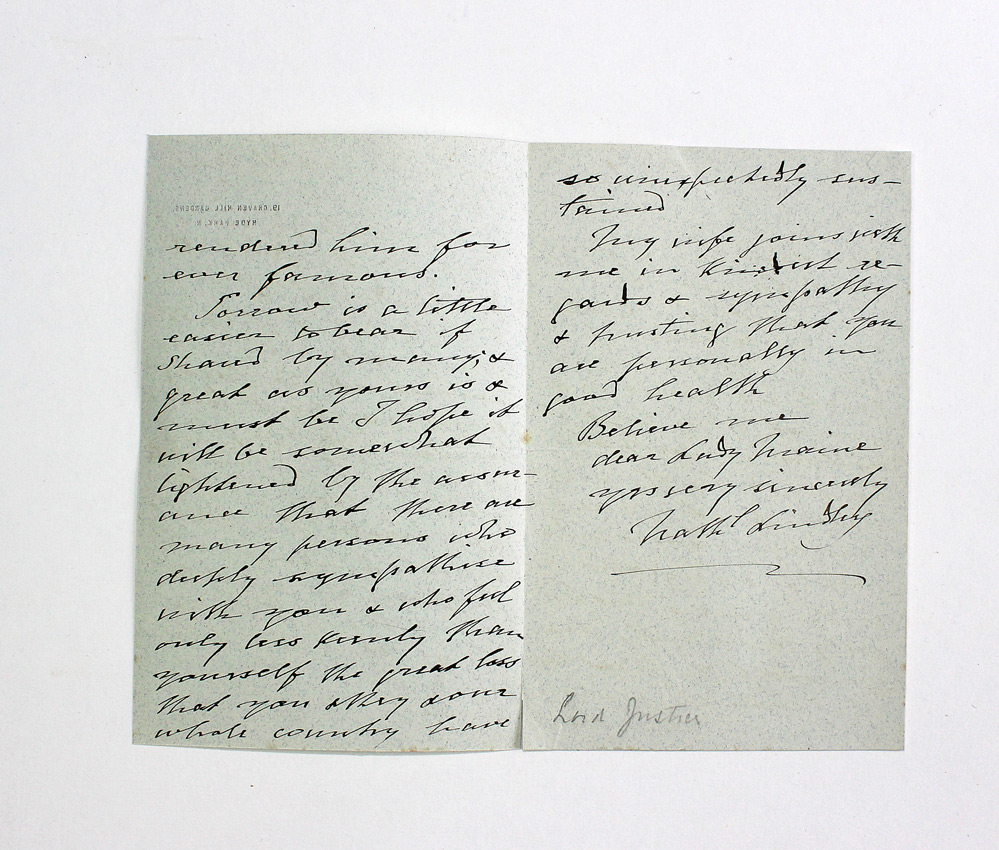 19, CRAVEN HILL GARDENS,
HYDE PARK, W.
rendered him for
ever famous.
Sorrow is a little
easier to bear if
shared by many; &
great as yours is &
must be I hope it
will be somewhat
lightened by the assur-
ance that there are
many persons who
deeply sympathise
with you & who feel
only less keenly than
yourself the great loss
that you & they & our
whole country have
so unexpectedly sus-
tained
My wife joins with
me in kindest re-
gards & sympathy
& trusting that you
are personally in
good health
Believe me
dear Lady Maine
yrs very sincerely
Nathl Lindley
Lord Justice